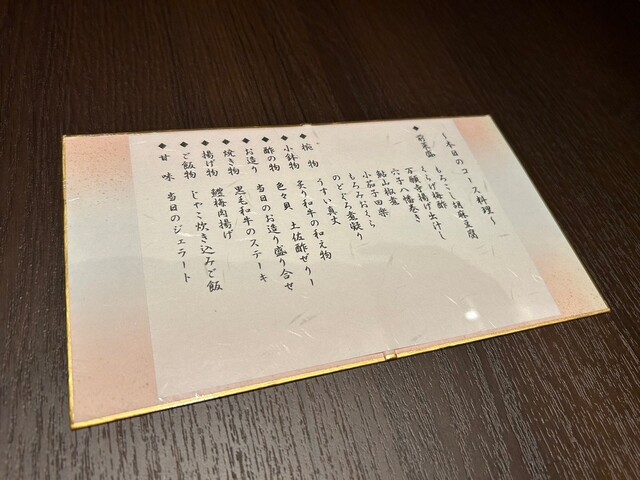 ～本日のコース料理～
◆前菜盛 もろこし胡麻豆腐
くらげ梅酢
万願寺揚げ出汁し
穴子八幡巻き
鮎山椒煮
小茄子田楽
もろみおくら
のどぐろ煮凝り
◆椀物 うすい真丈
◆小鉢物 炙り和牛の和え物
◆酢の物 色々貝 土佐酢ゼリー
◆お造り 当日のお造り盛り合せ
◆焼き物 黒毛和牛のステーキ
◆揚げ物 鱧梅肉揚げ
◆ご飯物 じゃこ炊き込みご飯
◆甘味 当日のジェラート